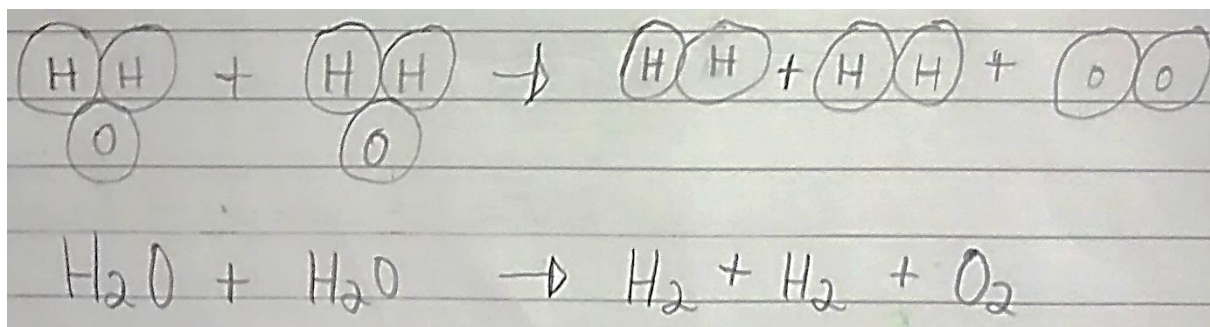 HH + HH → HH + HH + OO
O O
H₂O + H₂O → H₂ + H₂ + O₂